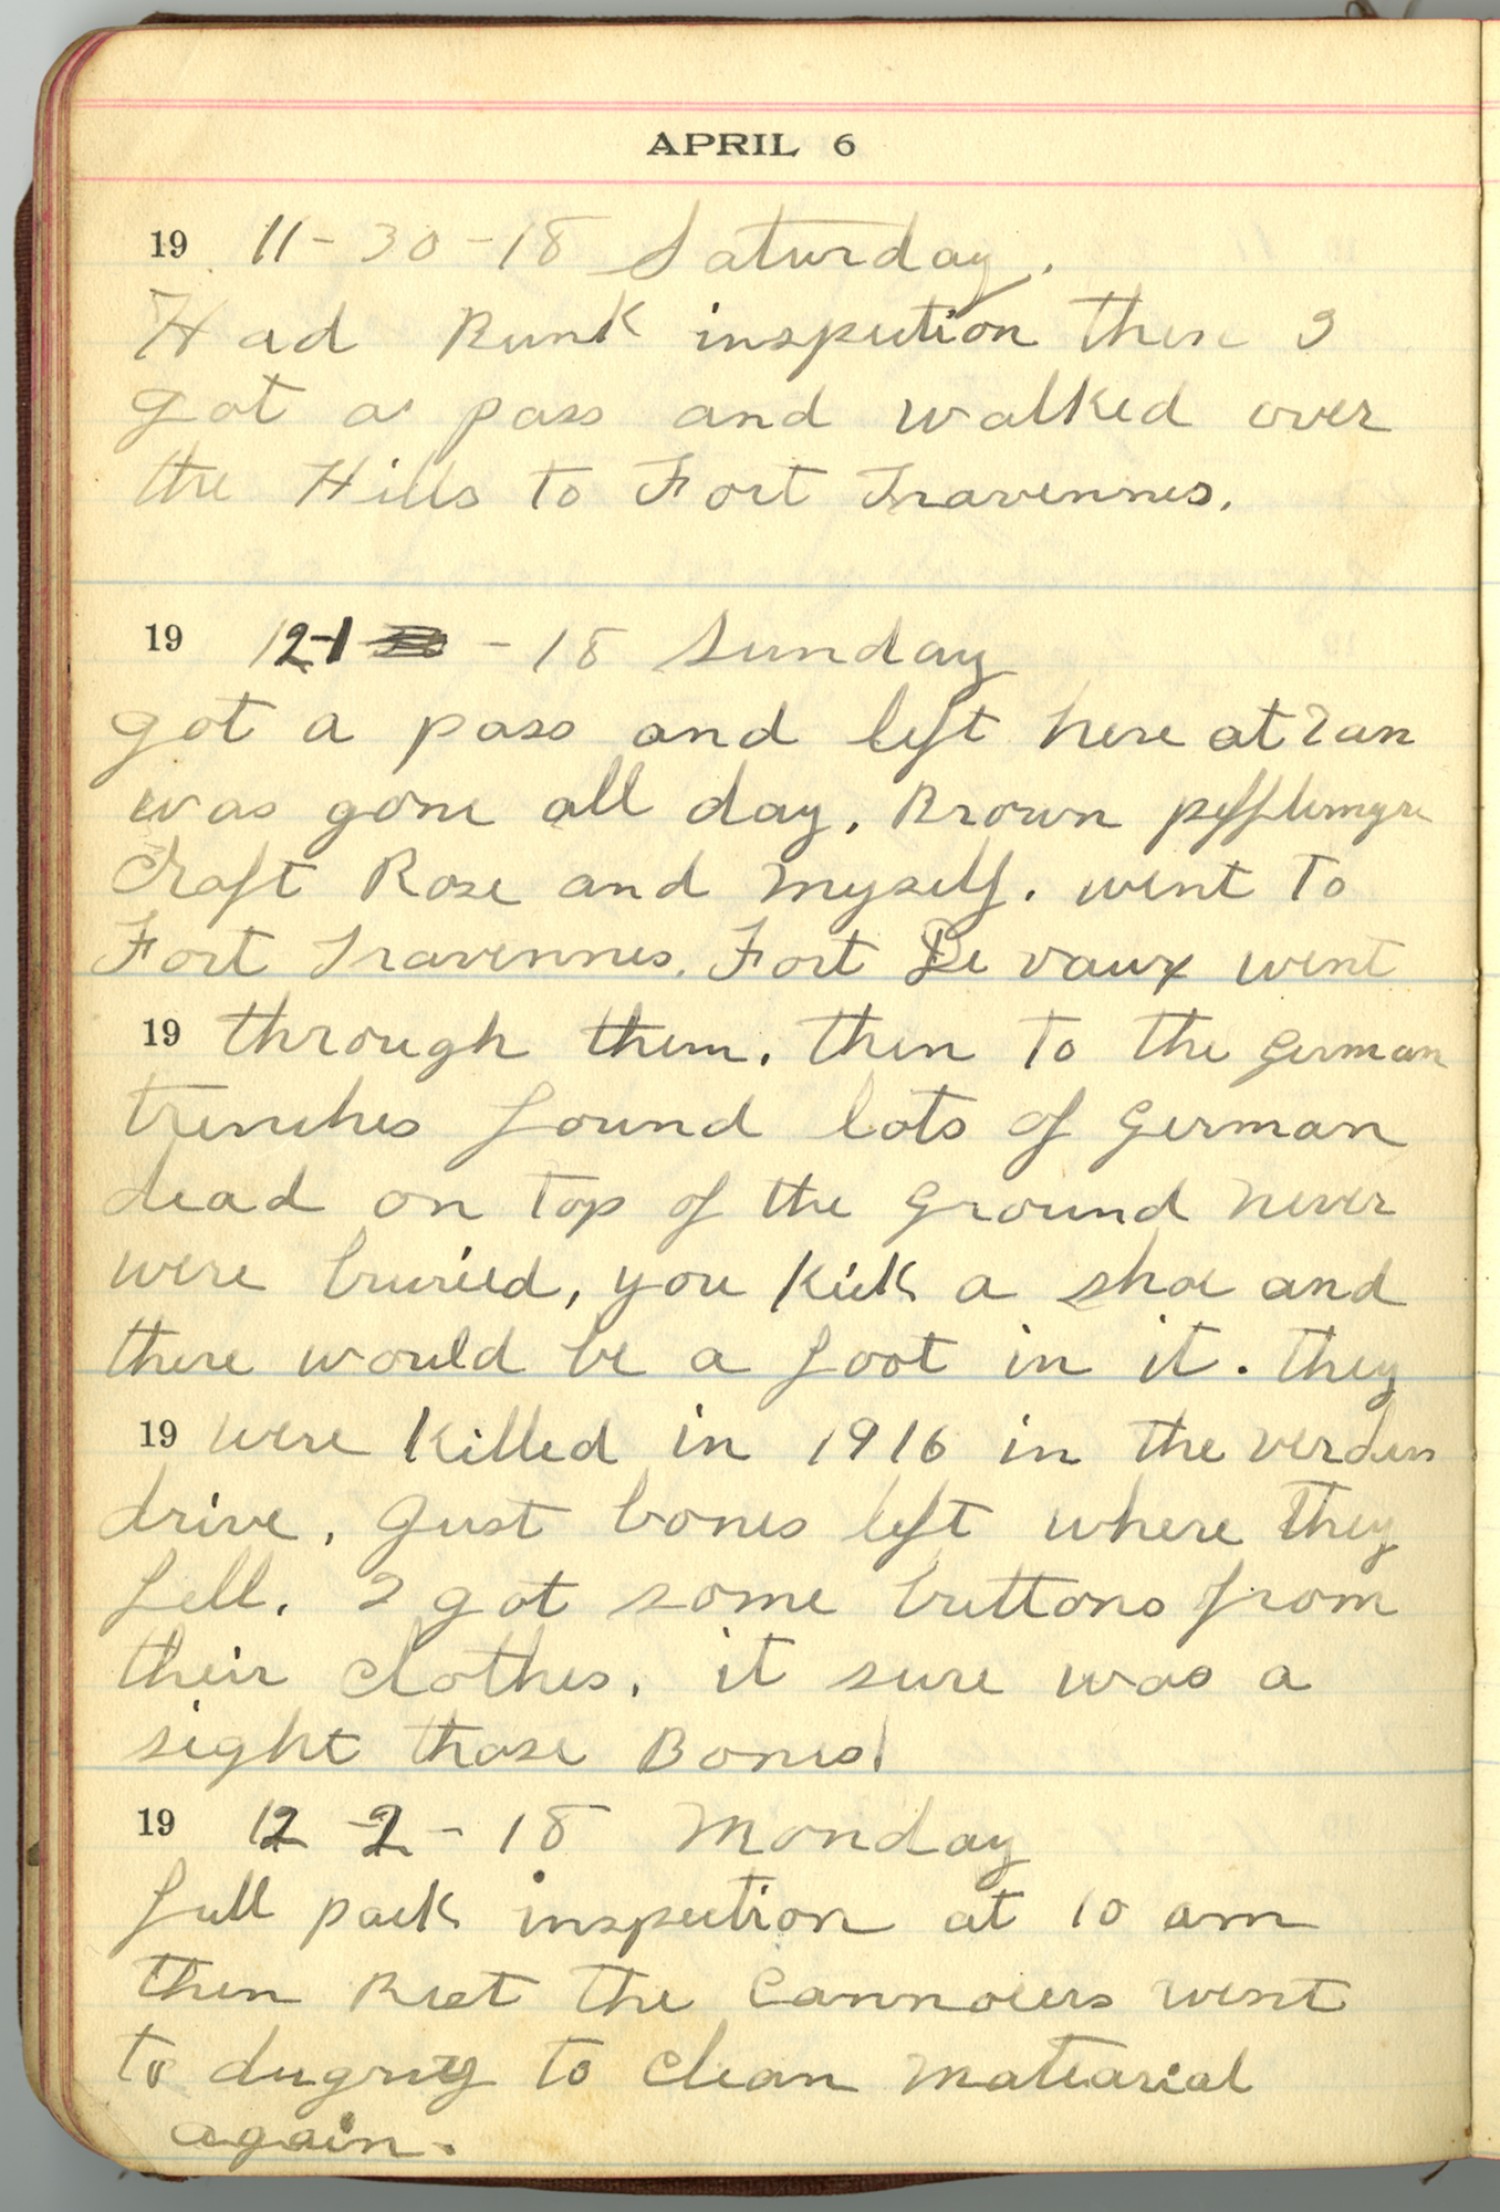 APRIL 6
19 11-30-18 Saturday.
Had Bunk inspection then I
got a pass and walked over
the Hills to Fort Travennes.
19 12-1 -18 Sunday
got a pass and left here at 7 am
was gone all day. Brown
Craft Rose and myself. went to
Fort Travennes. Fort De vaux went
19 through them. then to the German
trenches found lots of German
dead on top of the Ground never
were buried, you kick a shoe and
there would be a foot in it. they
19 were killed in 1916 in the verdun
drive. Just bones left where they
fell. I got some buttons from
their clothes. it sure was a
sight those Bones!
19 12-2-18 Monday
full pack inspection at 10 am
then Rest the Cannoeers went
to to clean matearial
again.